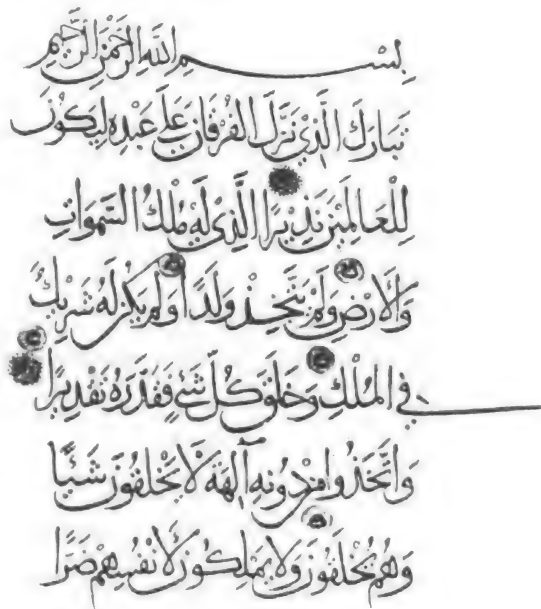 بِسْمِ اللهِ الرَّحْمٰنِ الرَّحِيْمِ
تَبَارَكَ الَّذِيْ نَزَّلَ الْفُرْقَانَ عَلٰى عَبْدِهٖ لِيَكُوْنَ
لِلْعَالَمِيْنَ نَذِيْرًا الَّذِيْ لَهٗ مُلْكُ السَّمٰوَاتِ
وَالْاَرْضِ وَلَمْ يَتَّخِذْ وَلَدًا وَلَمْ يَكُنْ لَهٗ شَرِيْكٌ
فِي الْمُلْكِ وَخَلَقَ كُلَّ شَيْءٍ فَقَدَّرَهٗ تَقْدِيْرًا
وَاتَّخَذُوْا مِنْ دُوْنِهٖ آلِهَةً لَّا يَخْلُقُوْنَ شَيْئًا
وَهُمْ يُخْلَقُوْنَ وَلَا يَمْلِكُوْنَ لِاَنْفُسِهِمْ ضَرًّا